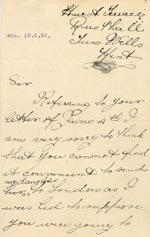 Rusthall
Tun. Wells
Kent
ans. 10.6.90.
Sir
Referring to your
letter of June 4th I
am very sorry to think
that you cannot find
it convenient to send
my daughter
to London as I
was led to suppose
you were going to